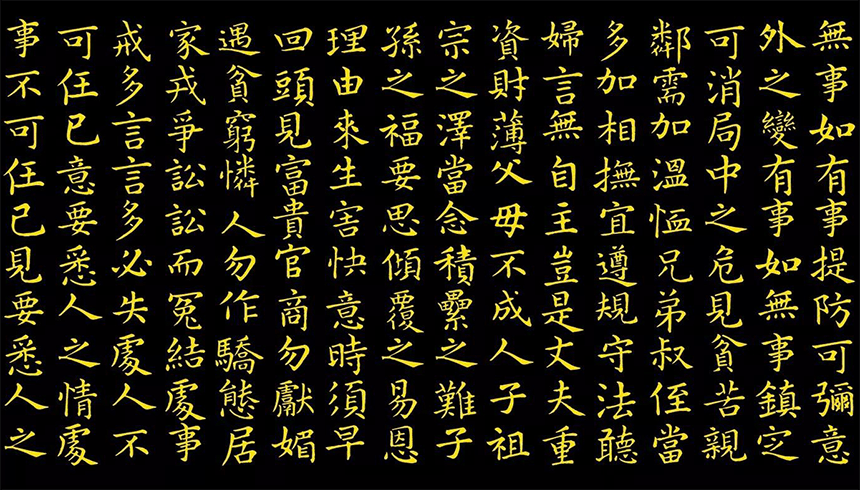 無事如有事提防可彌意
外之變有事如無事鎮定
可消局中之危見貧苦親
鄰需加溫恤兄弟叔侄當
多加相撫宜遵規守法聽
婦言無自主豈是丈夫重
資財薄父母不成人子祖
宗之澤當念積纍之難子
孫之福要思傾覆之易恩
理由來生害快意時須早
回頭見富貴官商勿獻媚
遇貧窮憐人勿作驕態居
家戎爭訟訟而冤結處事
戒多言言多必失處人不
可任己意要悉人之情處
事不可任己見要悉人之